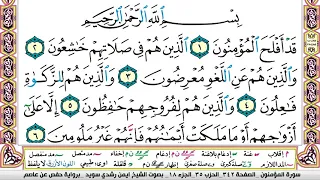 بِسْمِ اللَّهِ الرَّحْمَٰنِ الرَّحِيمِ
قَدْ أَفْلَحَ الْمُؤْمِنُونَ ١ الَّذِينَ هُمْ فِي صَلَاتِهِمْ خَاشِعُونَ ٢
وَالَّذِينَ هُمْ عَنِ اللَّغْوِ مُعْرِضُونَ ٣ وَالَّذِينَ هُمْ لِلزَّكَاةِ
فَاعِلُونَ ٤ وَالَّذِينَ هُمْ لِفُرُوجِهِمْ حَافِظُونَ ٥ إِلَّا عَلَىٰ
أَزْوَاجِهِمْ أَوْ مَا مَلَكَتْ أَيْمَانُهُمْ فَإِنَّهُمْ غَيْرُ مَلُومِينَ ٦
سورة المؤمنون الصفحة ٣٤٢ الحزب ٣٥ـ الجزء ١٨ بصوت الشيخ ايمن رشدي سويد - برواية حفص عن عاصم